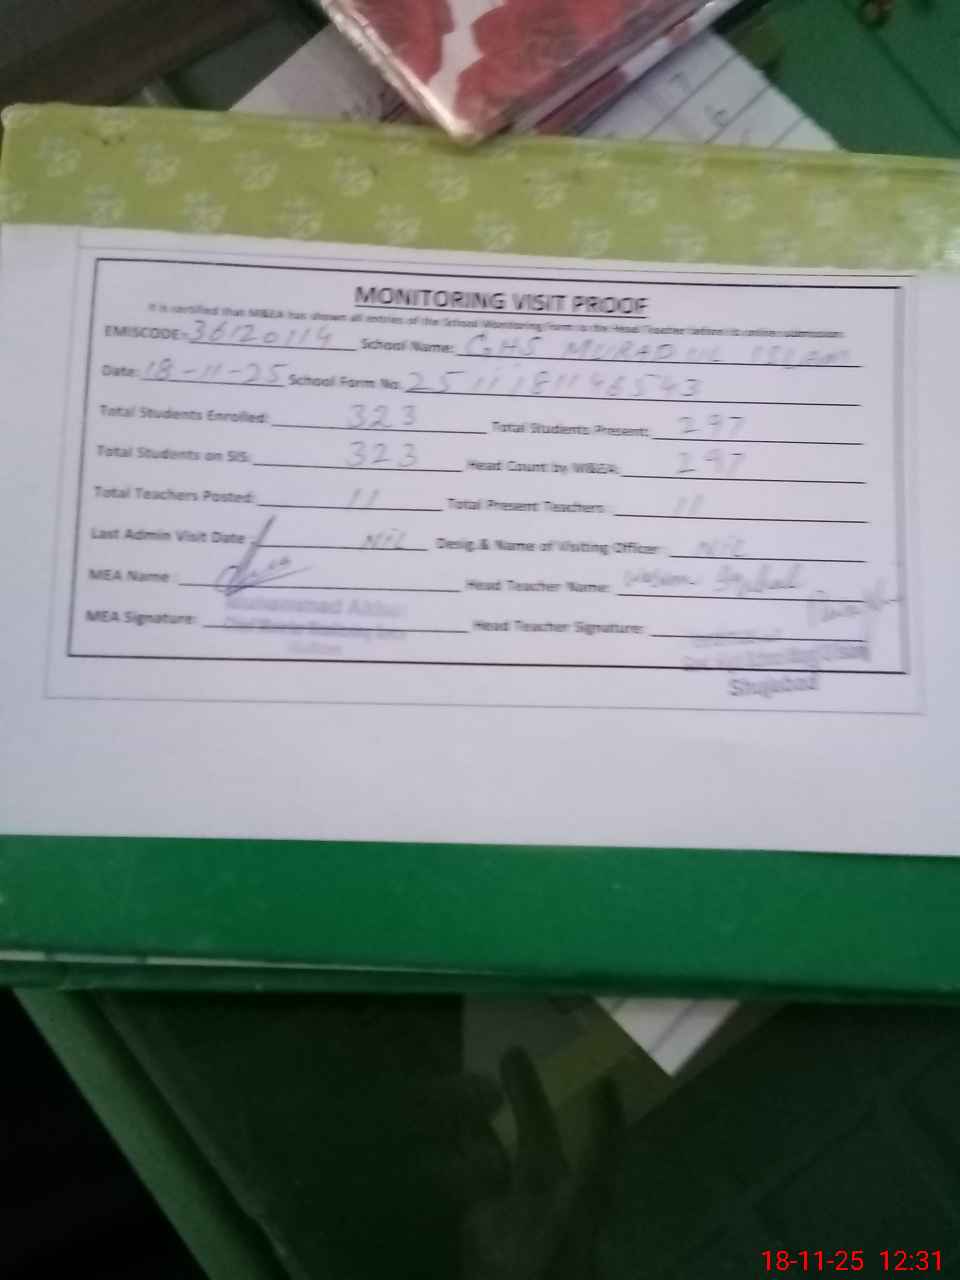 MONITORING VISIT PROOF
It is certified that M&EA has shown all entries of the School Monitoring Form to the Head Teacher before its online submission.
EMISCODE: 36120114 School Name: GHS MURAD
Date: 18-11-25 School Form No. 2511181146543
Total Students Enrolled: 323 Total Students Present: 297
Total Students on SIS: 323 Head Count by M&EA: 297
Total Teachers Posted: 11 Total Present Teachers: 11
Last Admin Visit Date: Nil Desig & Name of Visiting Officer: Nil
MEA Name: Head Teacher Name:
Muhammad
MEA Signature: Head Teacher Signature:
Shujabad
18-11-25 12:31